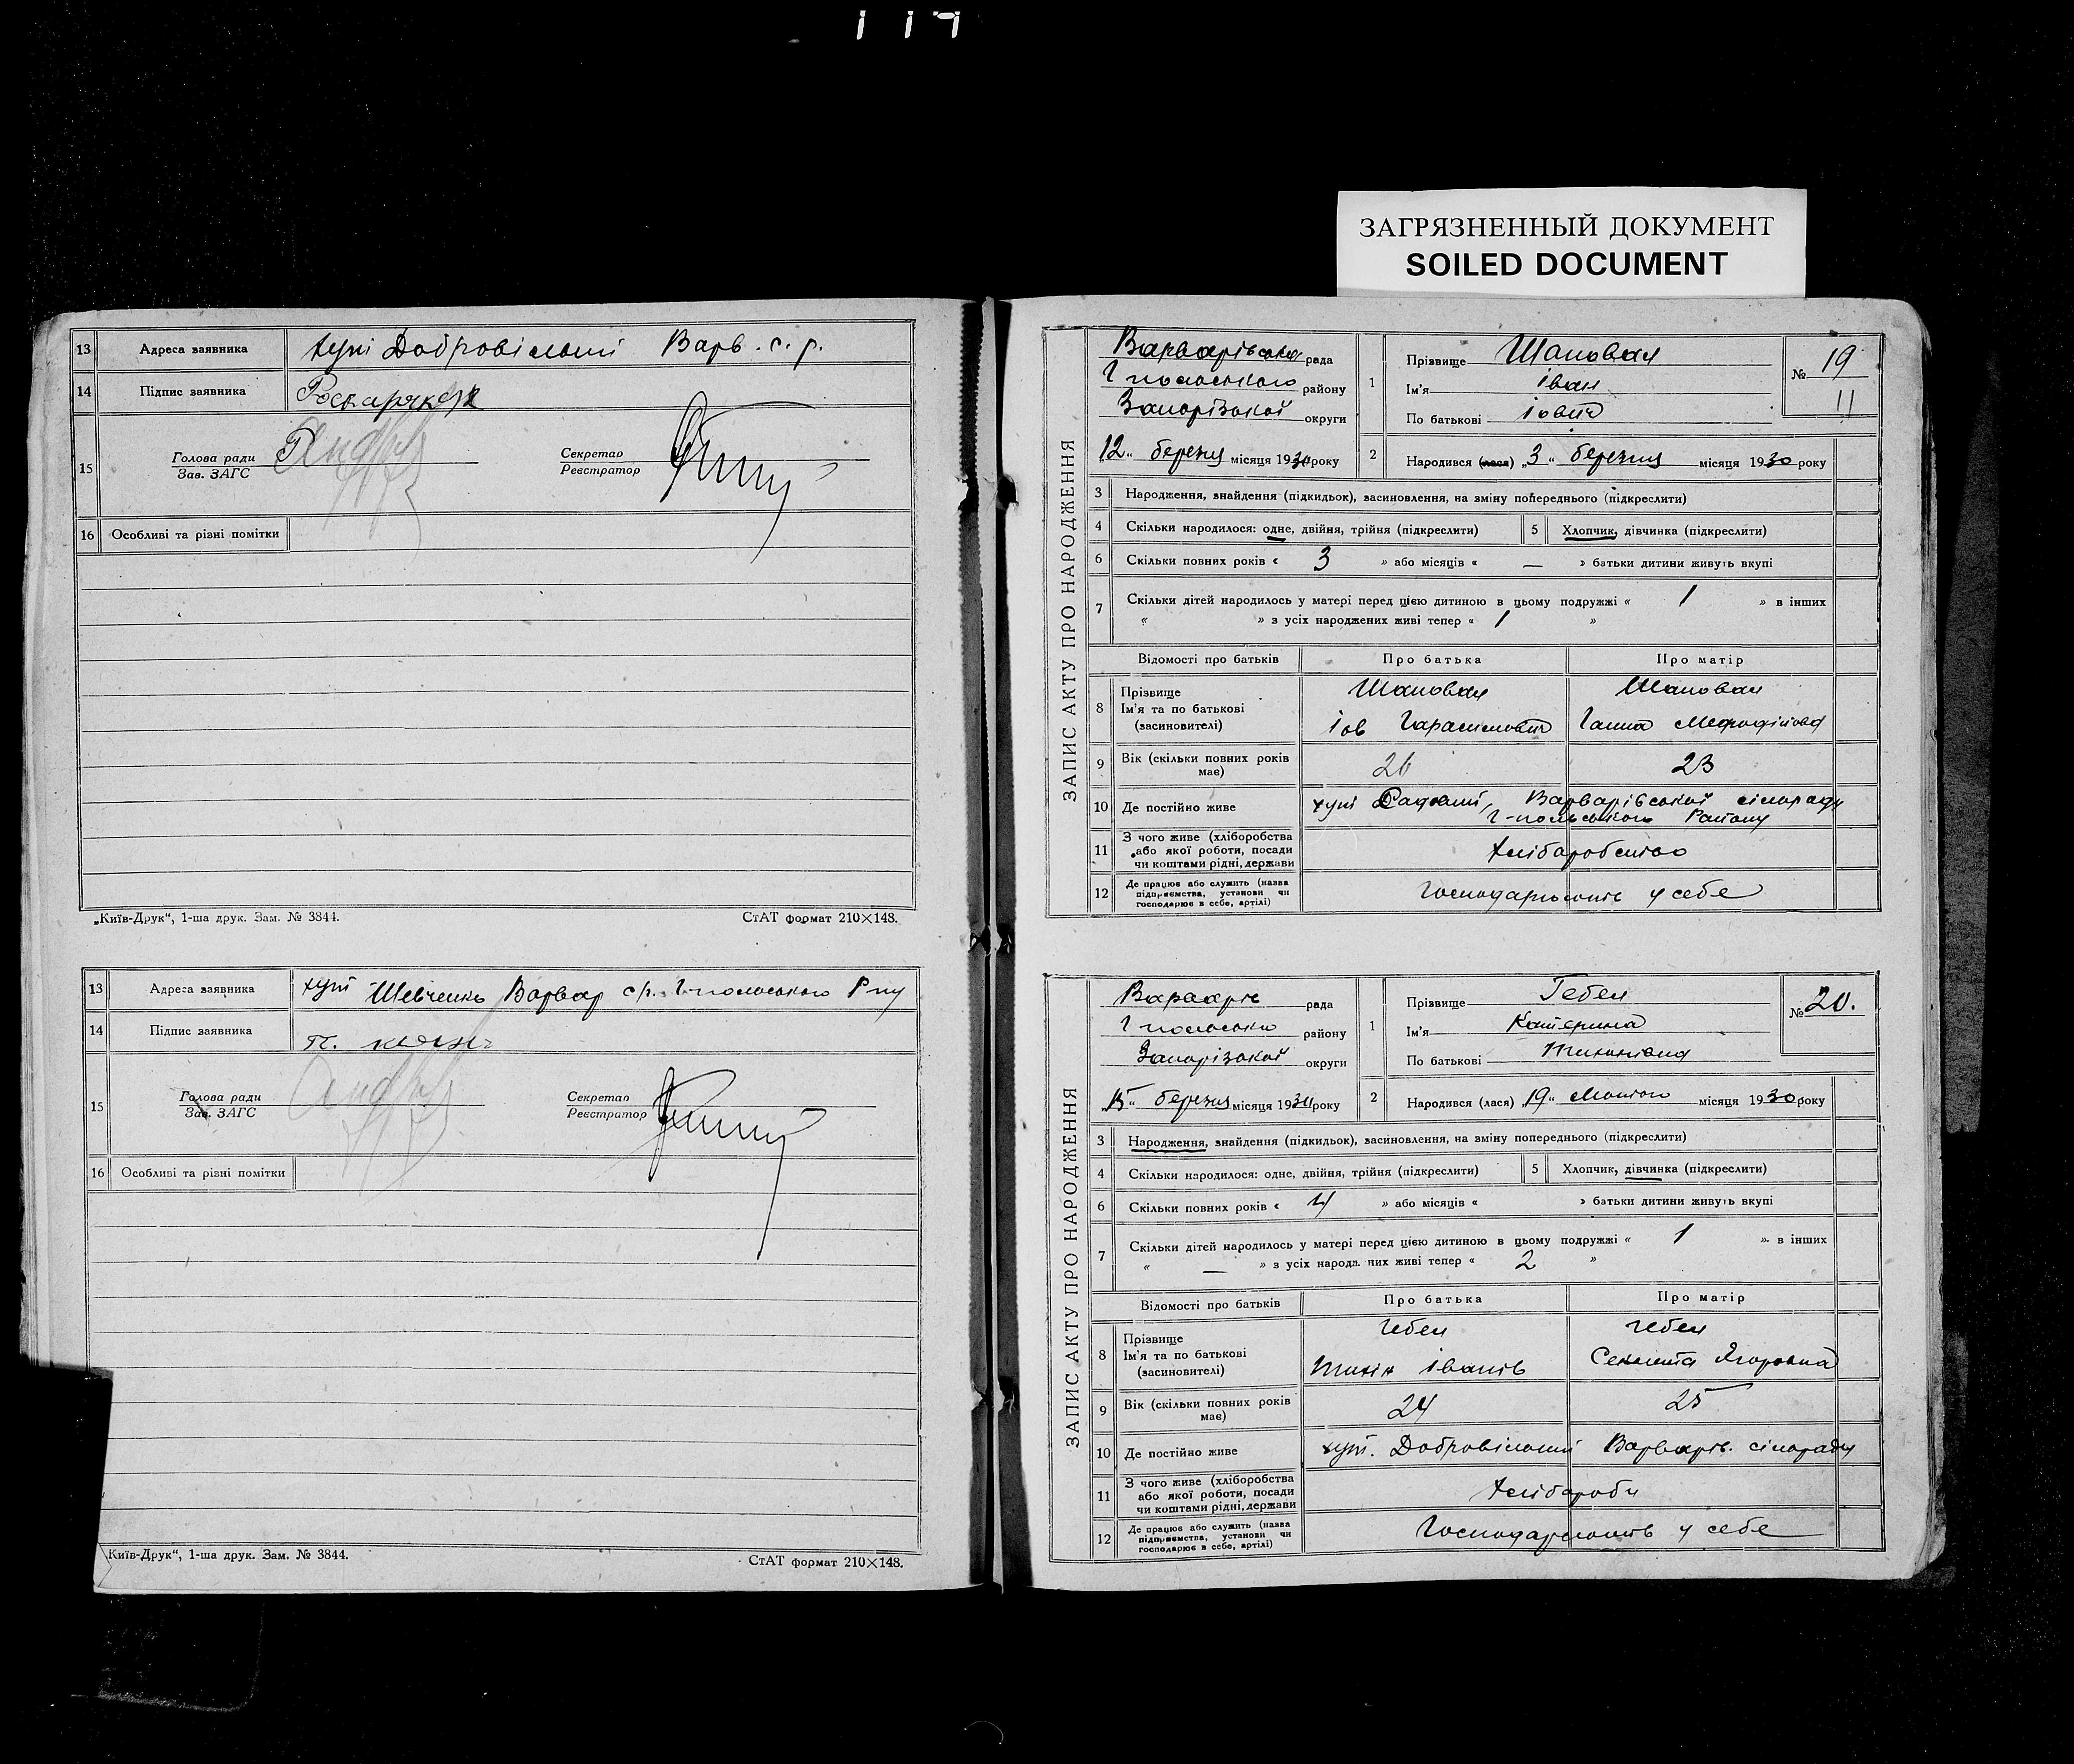 117
ЗАГРЯЗНЕННЫЙ ДОКУМЕНТ
SOILED DOCUMENT
13 Адреса заявника хут Добровільний Варв. с. р.
14 Підпис заявника
15 Голова ради
Зав. ЗАГС
Секретар
Реєстратор
16 Особливі та різні помітки
„Київ-Друк“, 1-ша друк. Зам. № 3844. СтАТ формат 210×148.
13 Адреса заявника хут Шевченко Варвар с/р. Г-польського Р-ну
14 Підпис заявника
15 Голова ради
Зав. ЗАГС
Секретар
Реєстратор
16 Особливі та різні помітки
Київ-Друк“, 1-ша друк. Зам. № 3844. СтАТ формат 210×148.
ЗАПИС АКТУ ПРО НАРОДЖЕННЯ
Варварівська рада
Гпольського району
Запорізької округи
„12“ березня місяця 1930 року
1 Прізвище Шаповал
Ім'я Іван
По батькові Іович
№ 19
11
2 Народився (лася) „3“ березня місяця 1930 року
3 Народження, знайдення (підкидьок), засиновлення, на зміну попереднього (підкреслити)
4 Скільки народилося: одне, двійня, трійня (підкреслити) 5 Хлопчик, дівчинка (підкреслити)
6 Скільки повних років « 3 » або місяців « — » батьки дитини живуть вкупі
7 Скільки дітей народилось у матері перед цією дитиною в цьому подружжі « 1 » в інших
« » з усіх народжених живі тепер « 1 »
Відомості про батьків Про батька Про матір
8 Прізвище Шаповал Шаповал
Ім'я та по батькові
(засиновителі) Іов Гарасимович Ганна Мефодіївна
9 Вік (скільки повних років має) 26 23
10 Де постійно живе хут Садовий, Варварівської сільради
Г-польського Району
11 З чого живе (хліборобства
або якої роботи, посади
чи коштами рідні, держави Хліборобство
12 Де працює або служить (назва
підприємства, установи чи
господарює в себе, артілі) Господарюють у себе
ЗАПИС АКТУ ПРО НАРОДЖЕННЯ
Варварів рада
Гпольськи району
Запорізької округи
„15“ березня місяця 1930 року
1 Прізвище Гебел
Ім'я Катерина
По батькові Тихонівна
№ 20.
2 Народився (лася) „19“ Лютого місяця 1930 року
3 Народження, знайдення (підкидьок), засиновлення, на зміну попереднього (підкреслити)
4 Скільки народилося: одне, двійня, трійня (підкреслити) 5 Хлопчик, дівчинка (підкреслити)
6 Скільки повних років « 4 » або місяців « » батьки дитини живуть вкупі
7 Скільки дітей народилось у матері перед цією дитиною в цьому подружжі « 1 » в інших
« — » з усіх народжених живі тепер « 2 »
Відомості про батьків Про батька Про матір
8 Прізвище Гебел Гебел
Ім'я та по батькові
(засиновителі) Тихін Іванів Ягоровна
9 Вік (скільки повних років має) 24 25
10 Де постійно живе хут. Добровільний Варварів. сільради
11 З чого живе (хліборобства
або якої роботи, посади
чи коштами рідні, держави Хлібороби
12 Де працює або служить (назва
підприємства, установи чи
господарює в себе, артілі) Господарюють у себе